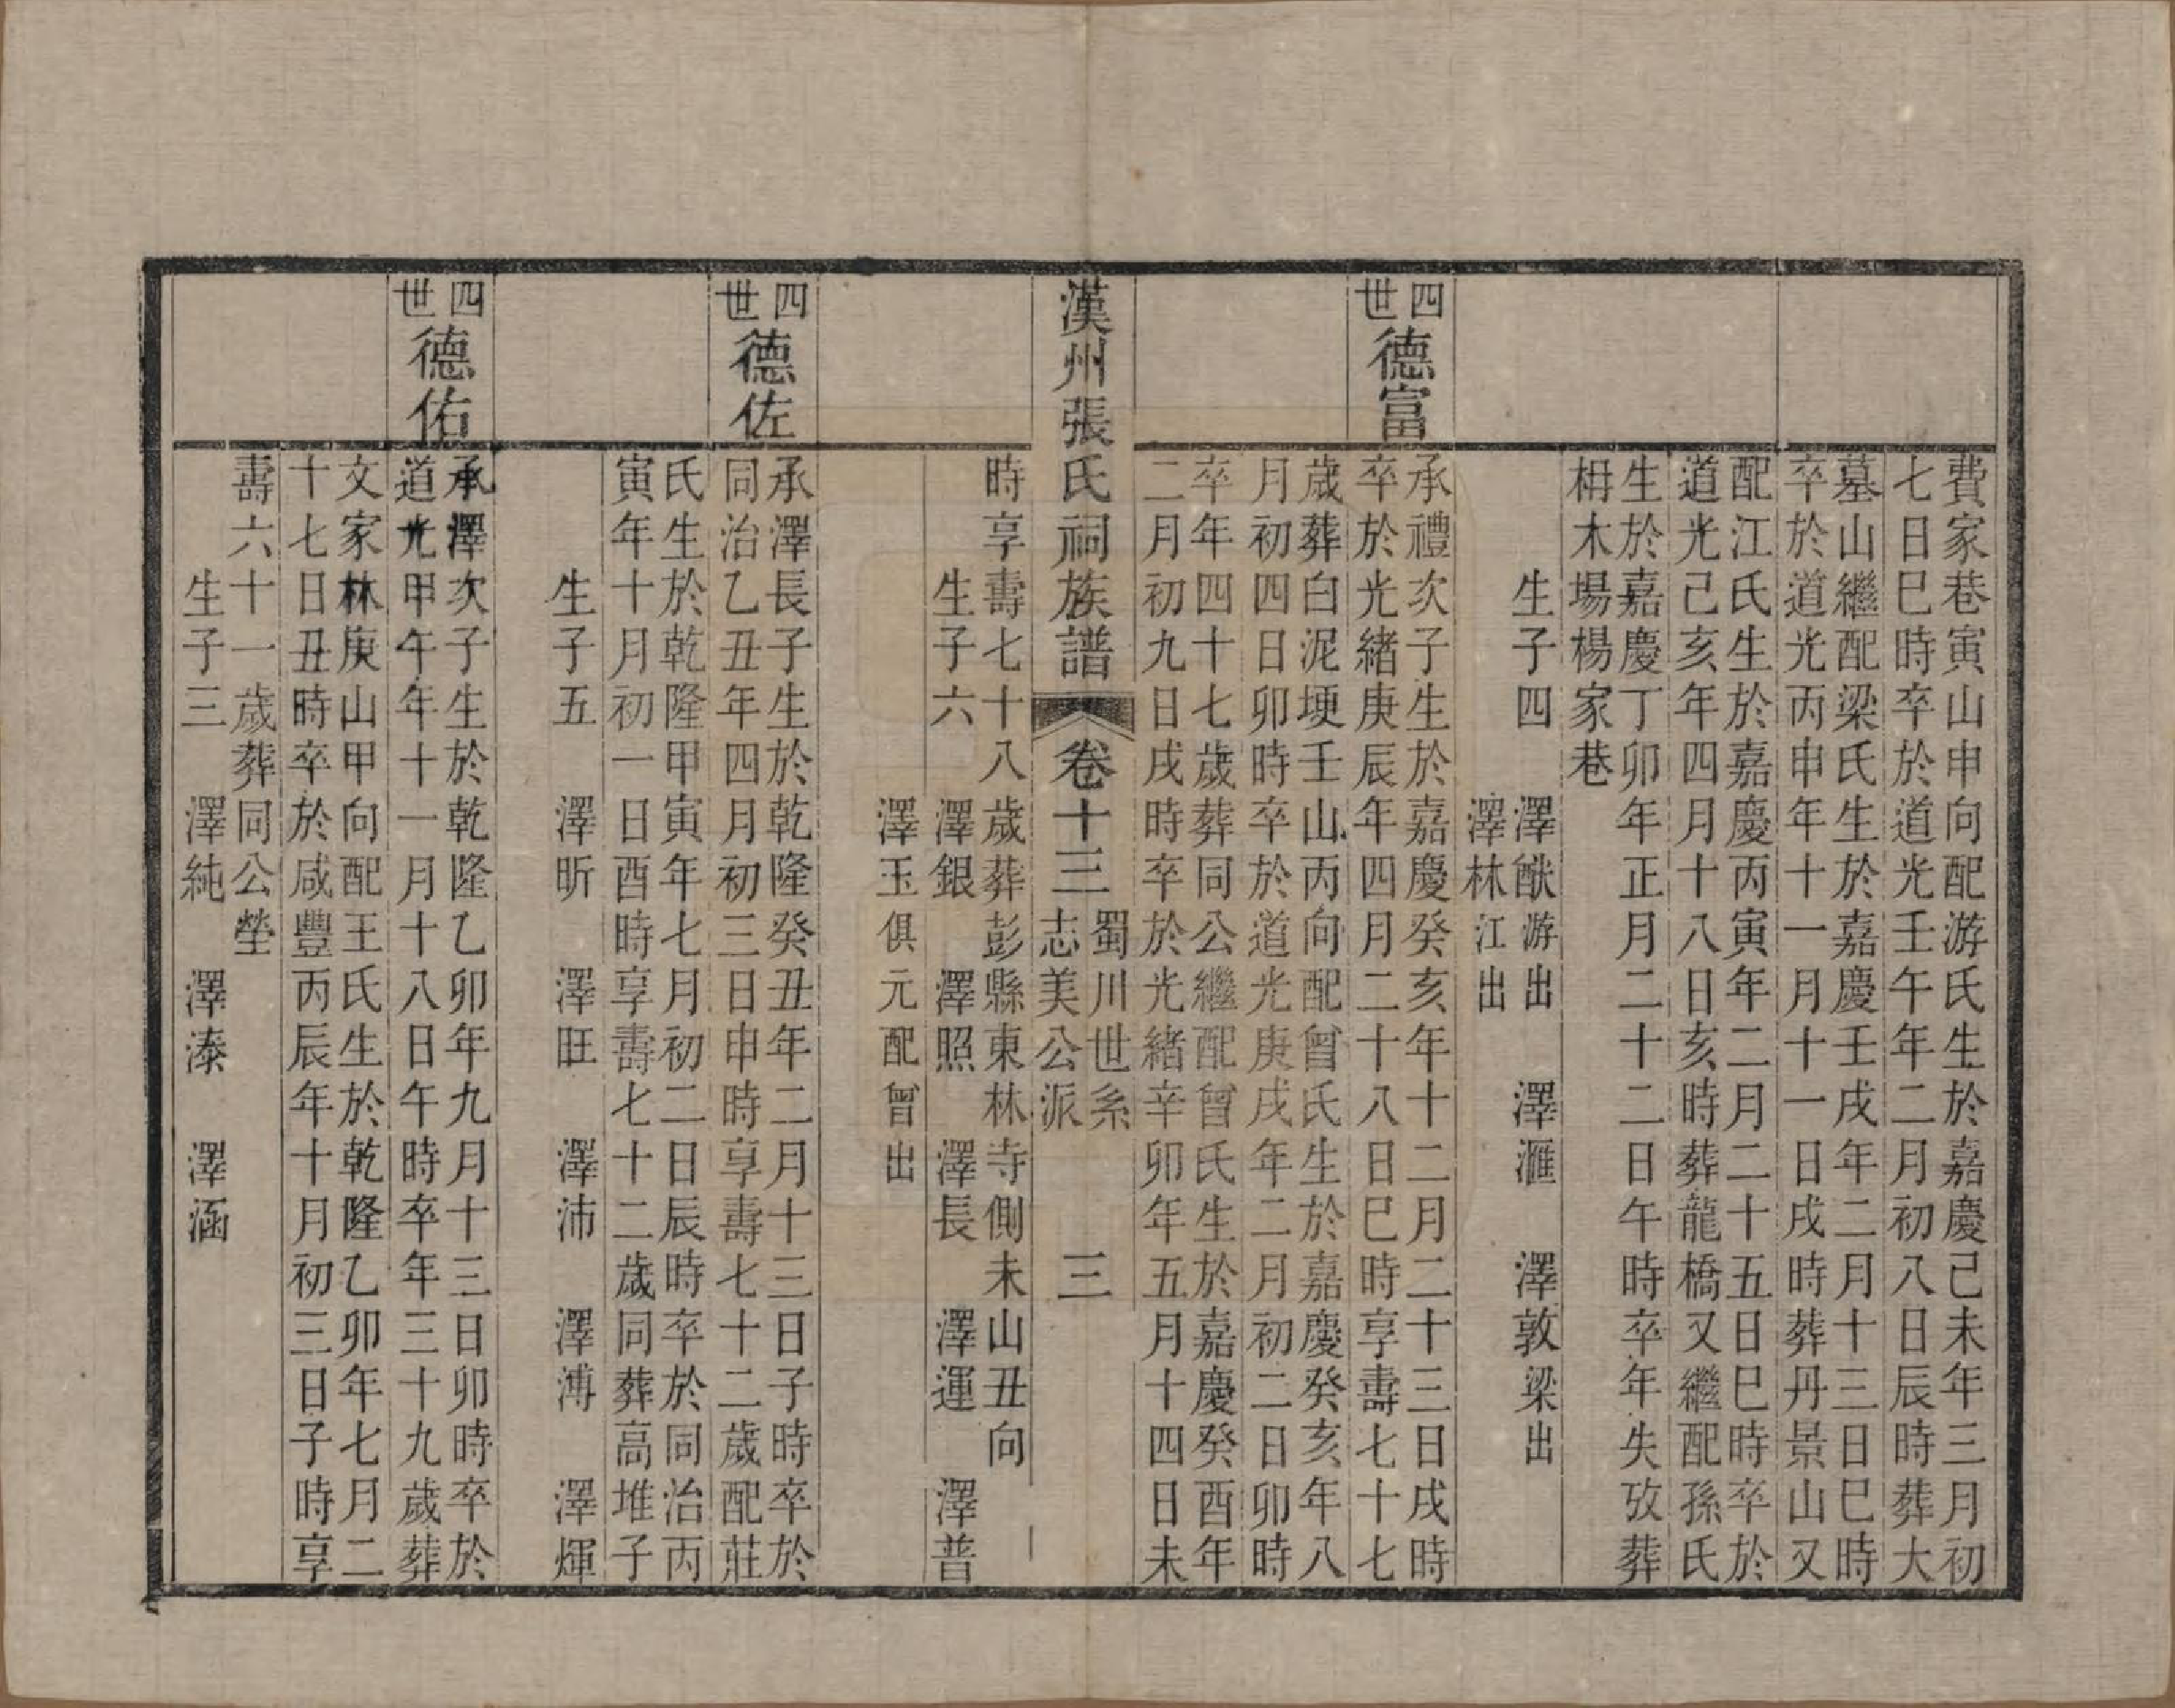 費家巷寅山申向配游氏生於嘉慶己未年三月初
七日巳時卒於道光壬午年二月初八日辰時葬大
墓山繼配梁氏生於嘉慶壬戌年二月十三日巳時
卒於道光丙申年十一月十一日戌時葬丹景山又
配江氏生於嘉慶丙寅年二月二十五日巳時卒於
道光己亥年四月十八日亥時葬龍橋又繼配孫氏
生於嘉慶丁卯年正月二十二日午時卒年失攷葬
枏木場楊家巷
生子四　澤猷游出　澤滙　澤敦梁出
澤林江出
四世德富
承禮次子生於嘉慶癸亥年十二月二十三日戌時
卒於光緒庚辰年四月二十八日巳時享壽七十七
歲葬白泥埂壬山丙向配曾氏生於嘉慶癸亥年八
月初四日卯時卒於道光庚戌年二月初二日卯時
卒年四十七歲葬同公繼配曾氏生於嘉慶癸酉年
二月初九日戌時卒於光緒辛卯年五月十四日未
漢州張氏祠族譜　卷十三　蜀川世系　志美公派　三
時享壽七十八歲葬彭縣東林寺側未山丑向
生子六　澤銀　澤照　澤長　澤運　澤普
澤玉俱元配曾出
四世德佐
承澤長子生於乾隆癸丑年二月十三日子時卒於
同治乙丑年四月初三日申時享壽七十二歲配莊
氏生於乾隆甲寅年七月初二日辰時卒於同治丙
寅年十月初一日酉時享壽七十二歲同葬高堆子
生子五　澤昕　澤旺　澤沛　澤溥　澤煇
四世德佑
承澤次子生於乾隆乙卯年九月十三日卯時卒於
道光甲午年十一月十八日午時卒年三十九歲葬
文家林庚山甲向配王氏生於乾隆乙卯年七月二
十七日丑時卒於咸豐丙辰年十月初三日子時享
壽六十一歲葬同公塋
生子三　澤純　澤溙　澤涵